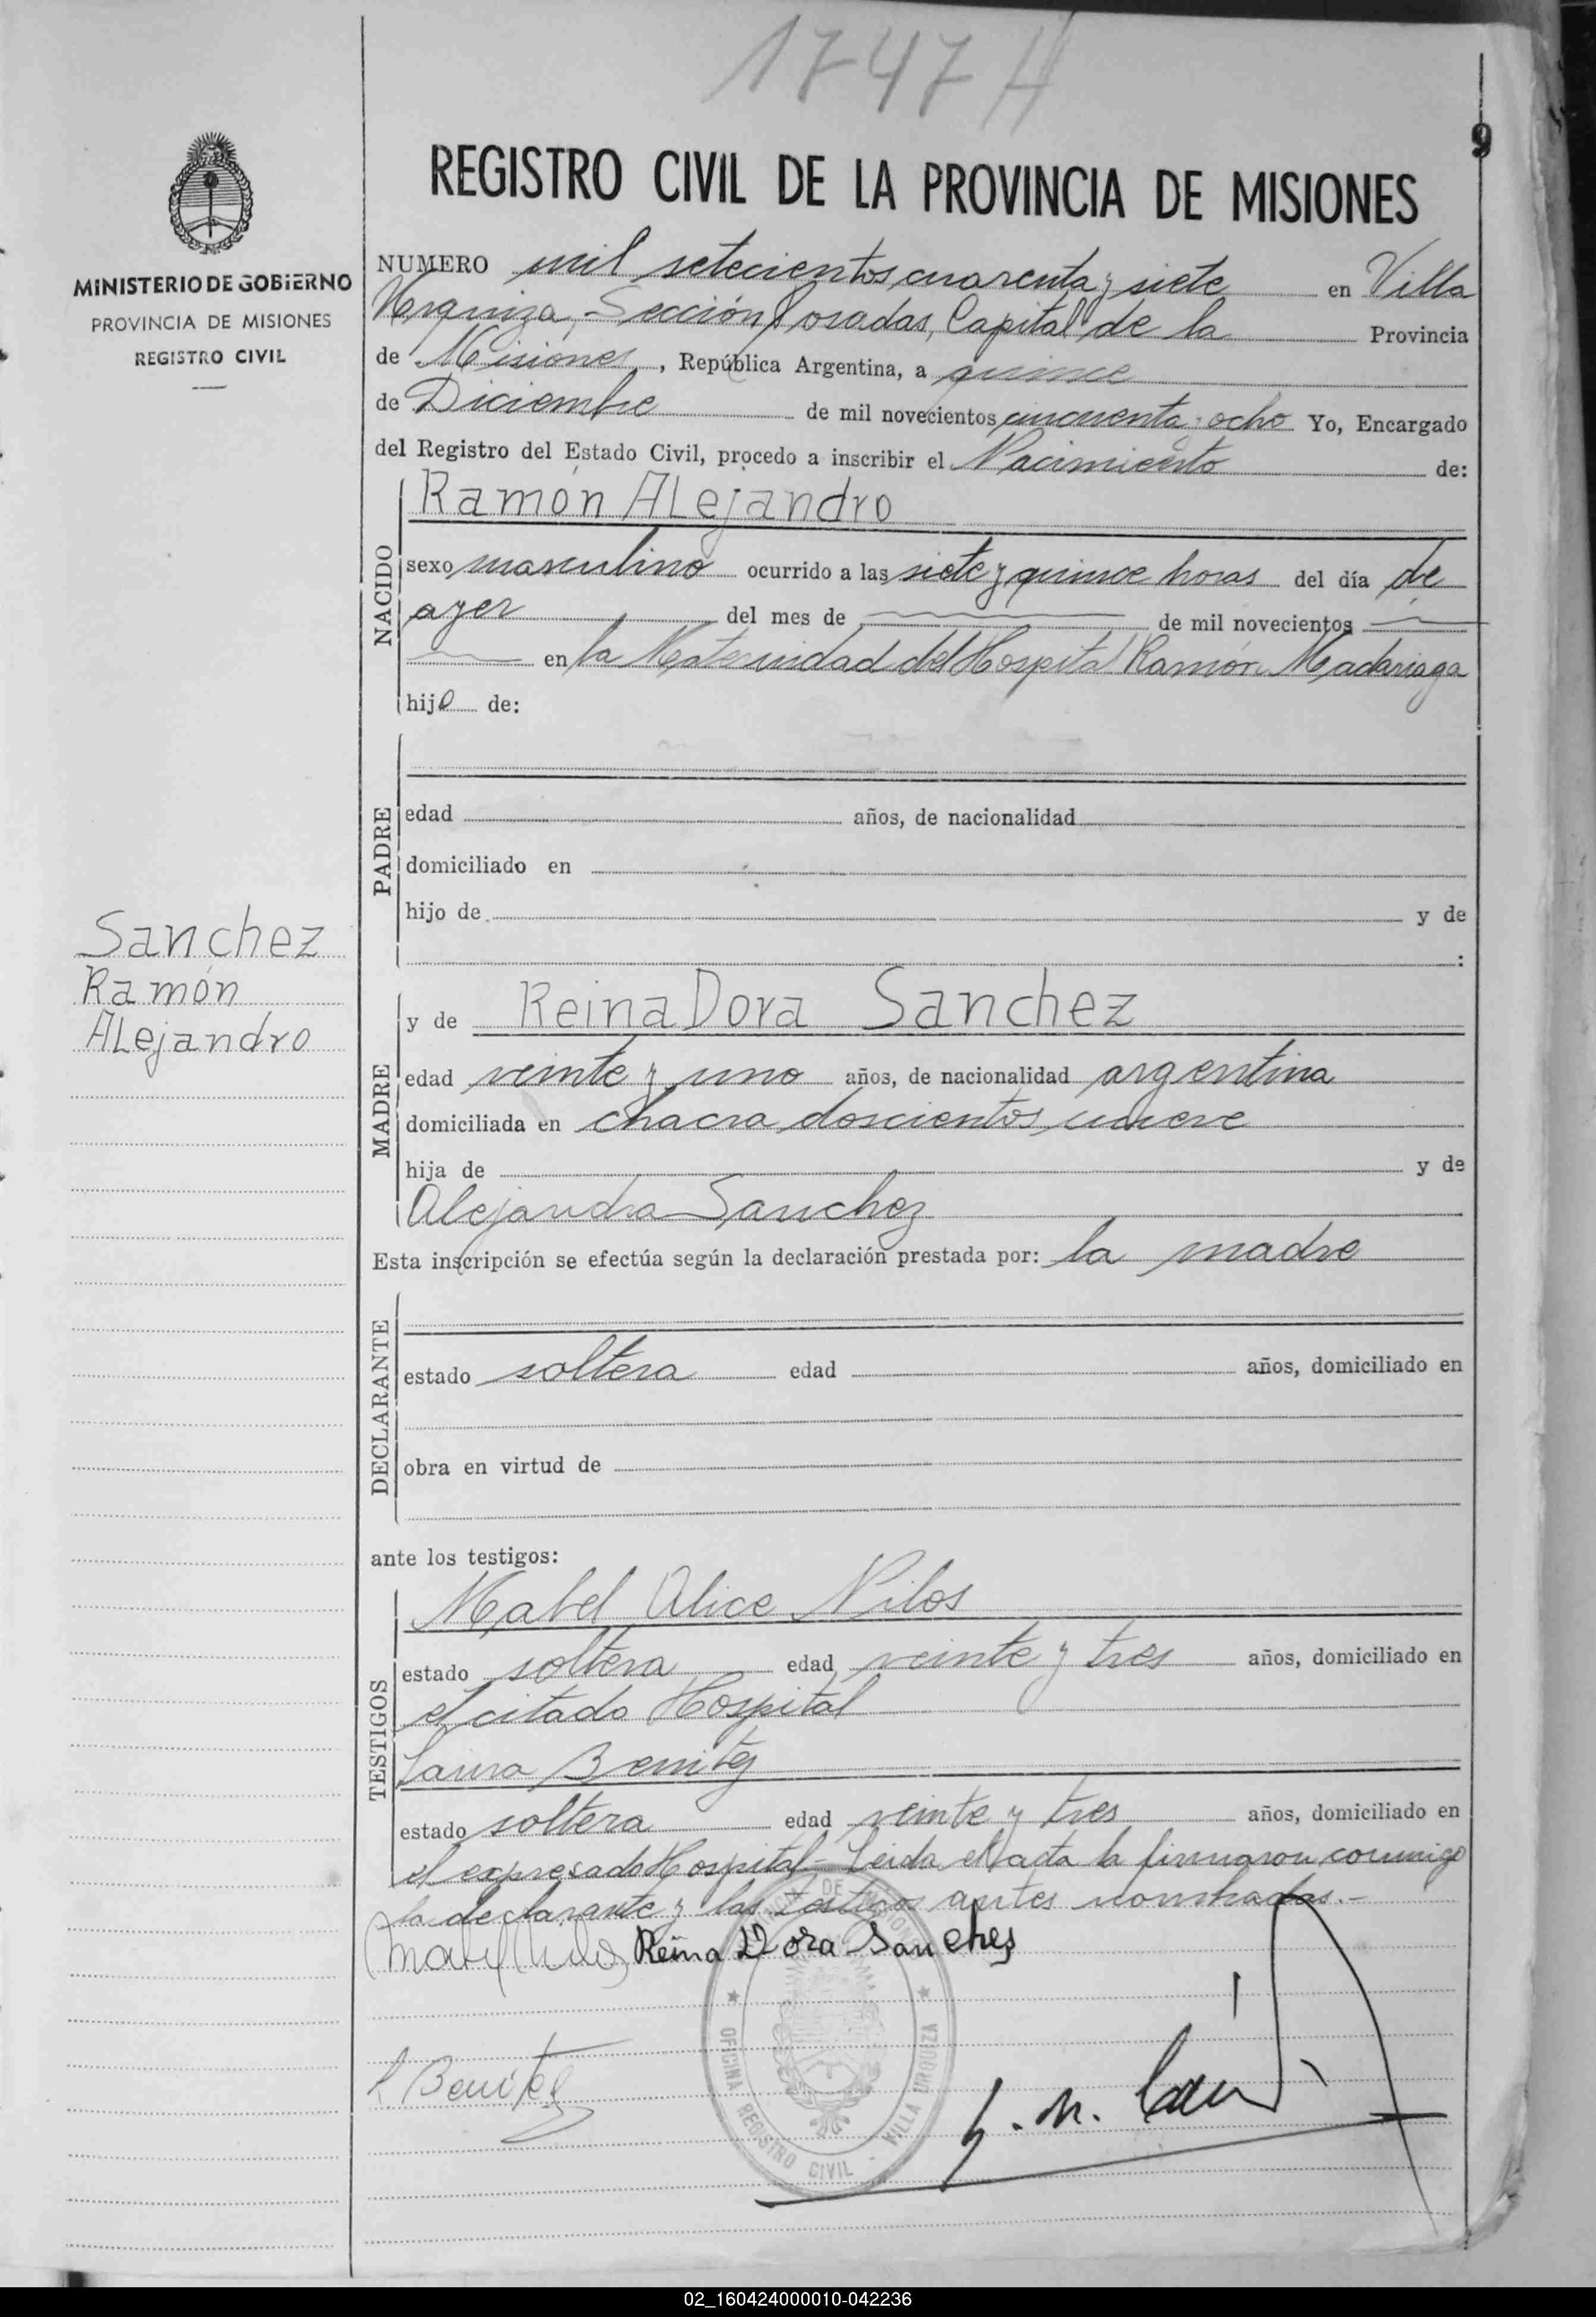 1747 H
9
REGISTRO CIVIL DE LA PROVINCIA DE MISIONES
MINISTERIO DE GOBIERNO
PROVINCIA DE MISIONES
REGISTRO CIVIL
NUMERO mil setecientos cuarenta y siete en Villa
Urquiza, Sección Posadas, Capital de la Provincia
de Misiones, República Argentina, a quince
de Diciembre de mil novecientos cincuenta y ocho Yo, Encargado
del Registro del Estado Civil, procedo a inscribir el Nacimiento de:
NACIDO
Ramón Alejandro
sexo masculino ocurrido a las siete y quince horas del día de
ayer del mes de de mil novecientos
en la Maternidad del Hospital Ramón Madariaga
hijo de:
PADRE
edad años, de nacionalidad
domiciliado en
hijo de y de
:
Sanchez
Ramón
Alejandro
MADRE
y de Reina Dora Sanchez
edad veinte y uno años, de nacionalidad argentina
domiciliada en chacra doscientos nueve
hija de y de
Alejandra Sanchez
Esta inscripción se efectúa según la declaración prestada por: la madre
DECLARANTE
estado soltera edad años, domiciliado en
obra en virtud de
ante los testigos:
TESTIGOS
Mabel Alice Nilos
estado soltera edad veinte y tres años, domiciliado en
el citado Hospital
Laura Benitez
estado soltera edad veinte y tres años, domiciliado en
el expresado Hospital - Leida el acta la firmaron conmigo
la declarante y las testigos antes nombradas.-
Reina Dora Sanches
L Benitez
OFICINA REGISTRO CIVIL - VILLA URQUIZA
02_160424000010-042236